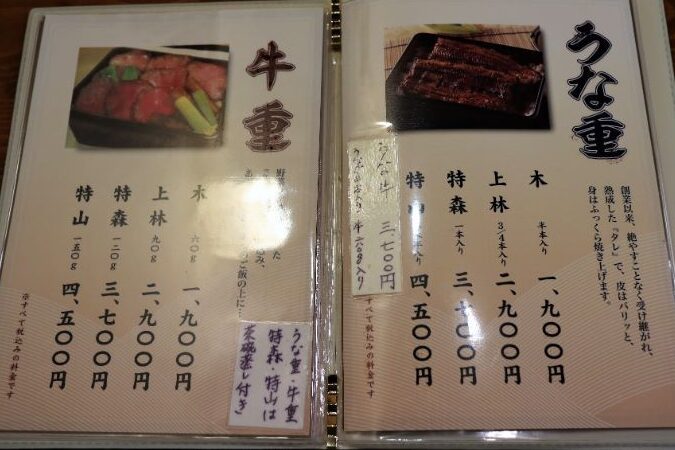 うな重
創業以来、絶やすことなく受け継がれ、
熟成した『タレ』で、皮はパリッと、
身はふっくら焼き上げます。
木 半本入り 一、九〇〇円
上林 3/4本入り 二、九〇〇円
特森 一本入り 三、七〇〇円
特山 本入り 四、五〇〇円
うな牛 三、七〇〇円
※すべて税込みの料金です
牛重
ご飯の上に…
木 六〇g 一、九〇〇円
上林 九〇g 二、九〇〇円
特森 一二〇g 三、七〇〇円
特山 一五〇g 四、五〇〇円
※すべて税込みの料金です
うな重・牛重
特森・特山は
茶碗蒸し付き